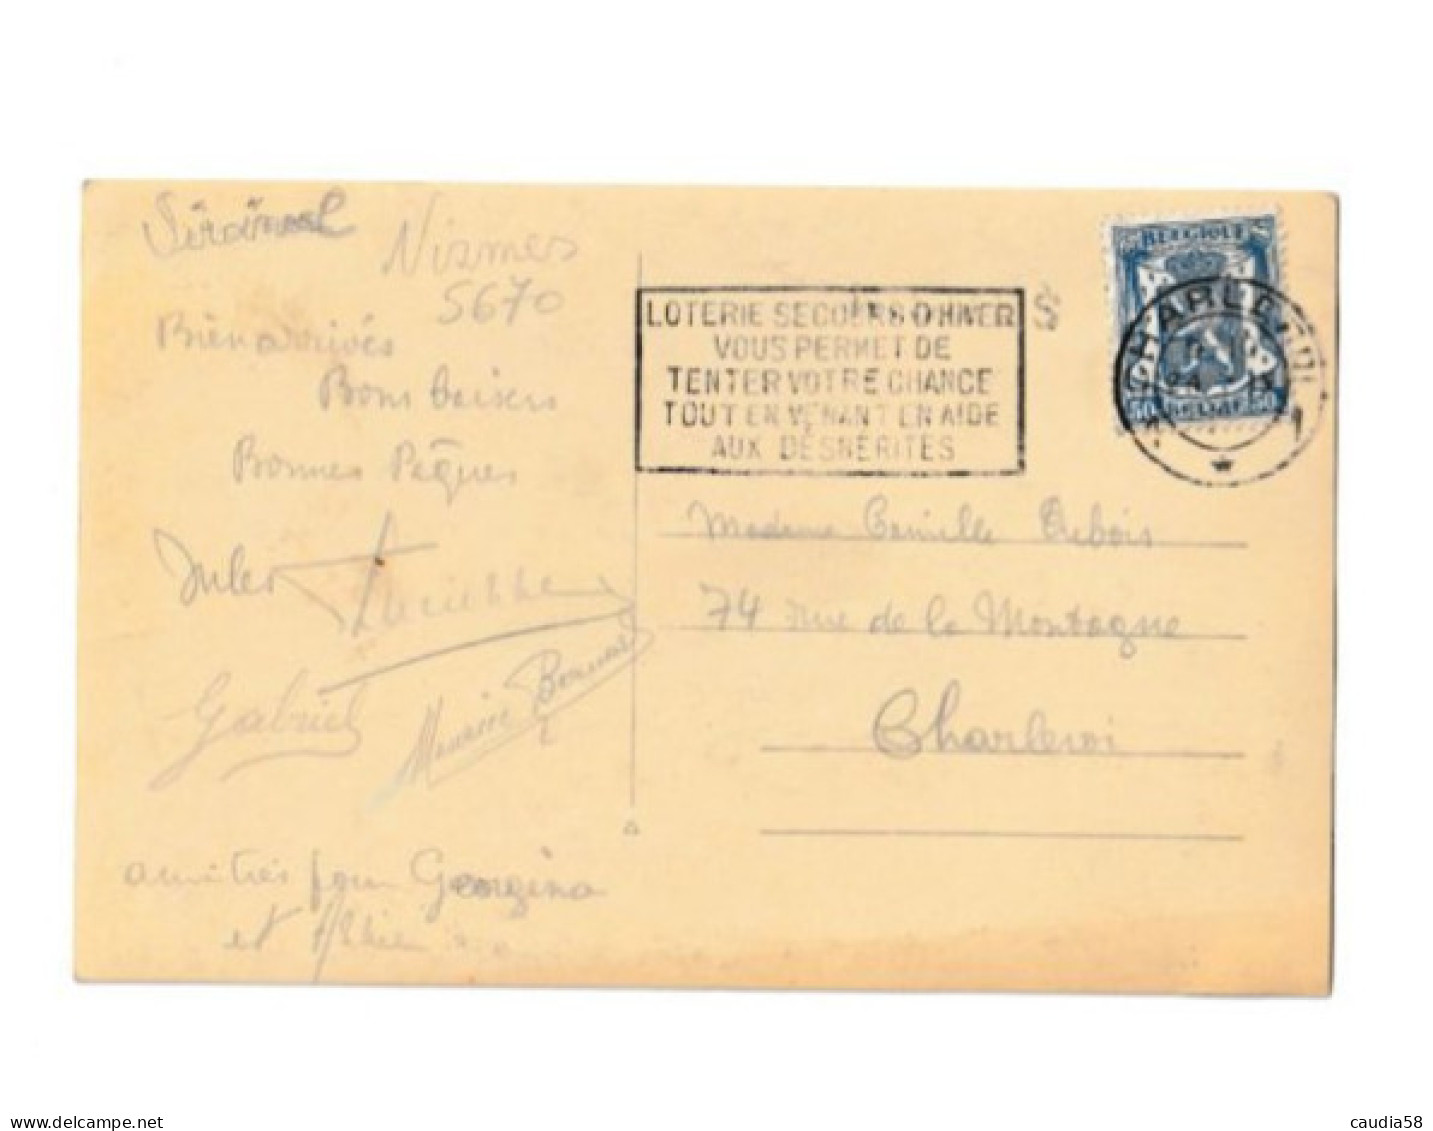 Nismes
5670
Bien arrivés
Bons baisers
Bonnes Pâques
Jules
Lucienne
Gabriel
Maurice
amitiés pour Georgina
et
LOTERIE SECOURS D'HIVER
VOUS PERMET DE
TENTER VOTRE CHANCE
TOUT EN VENANT EN AIDE
AUX DESHERITES
BELGIQUE
50 BELGIE 50
CHARLEROI
Madame Camille Debois
74 rue de la Montagne
Charleroi
caudia58